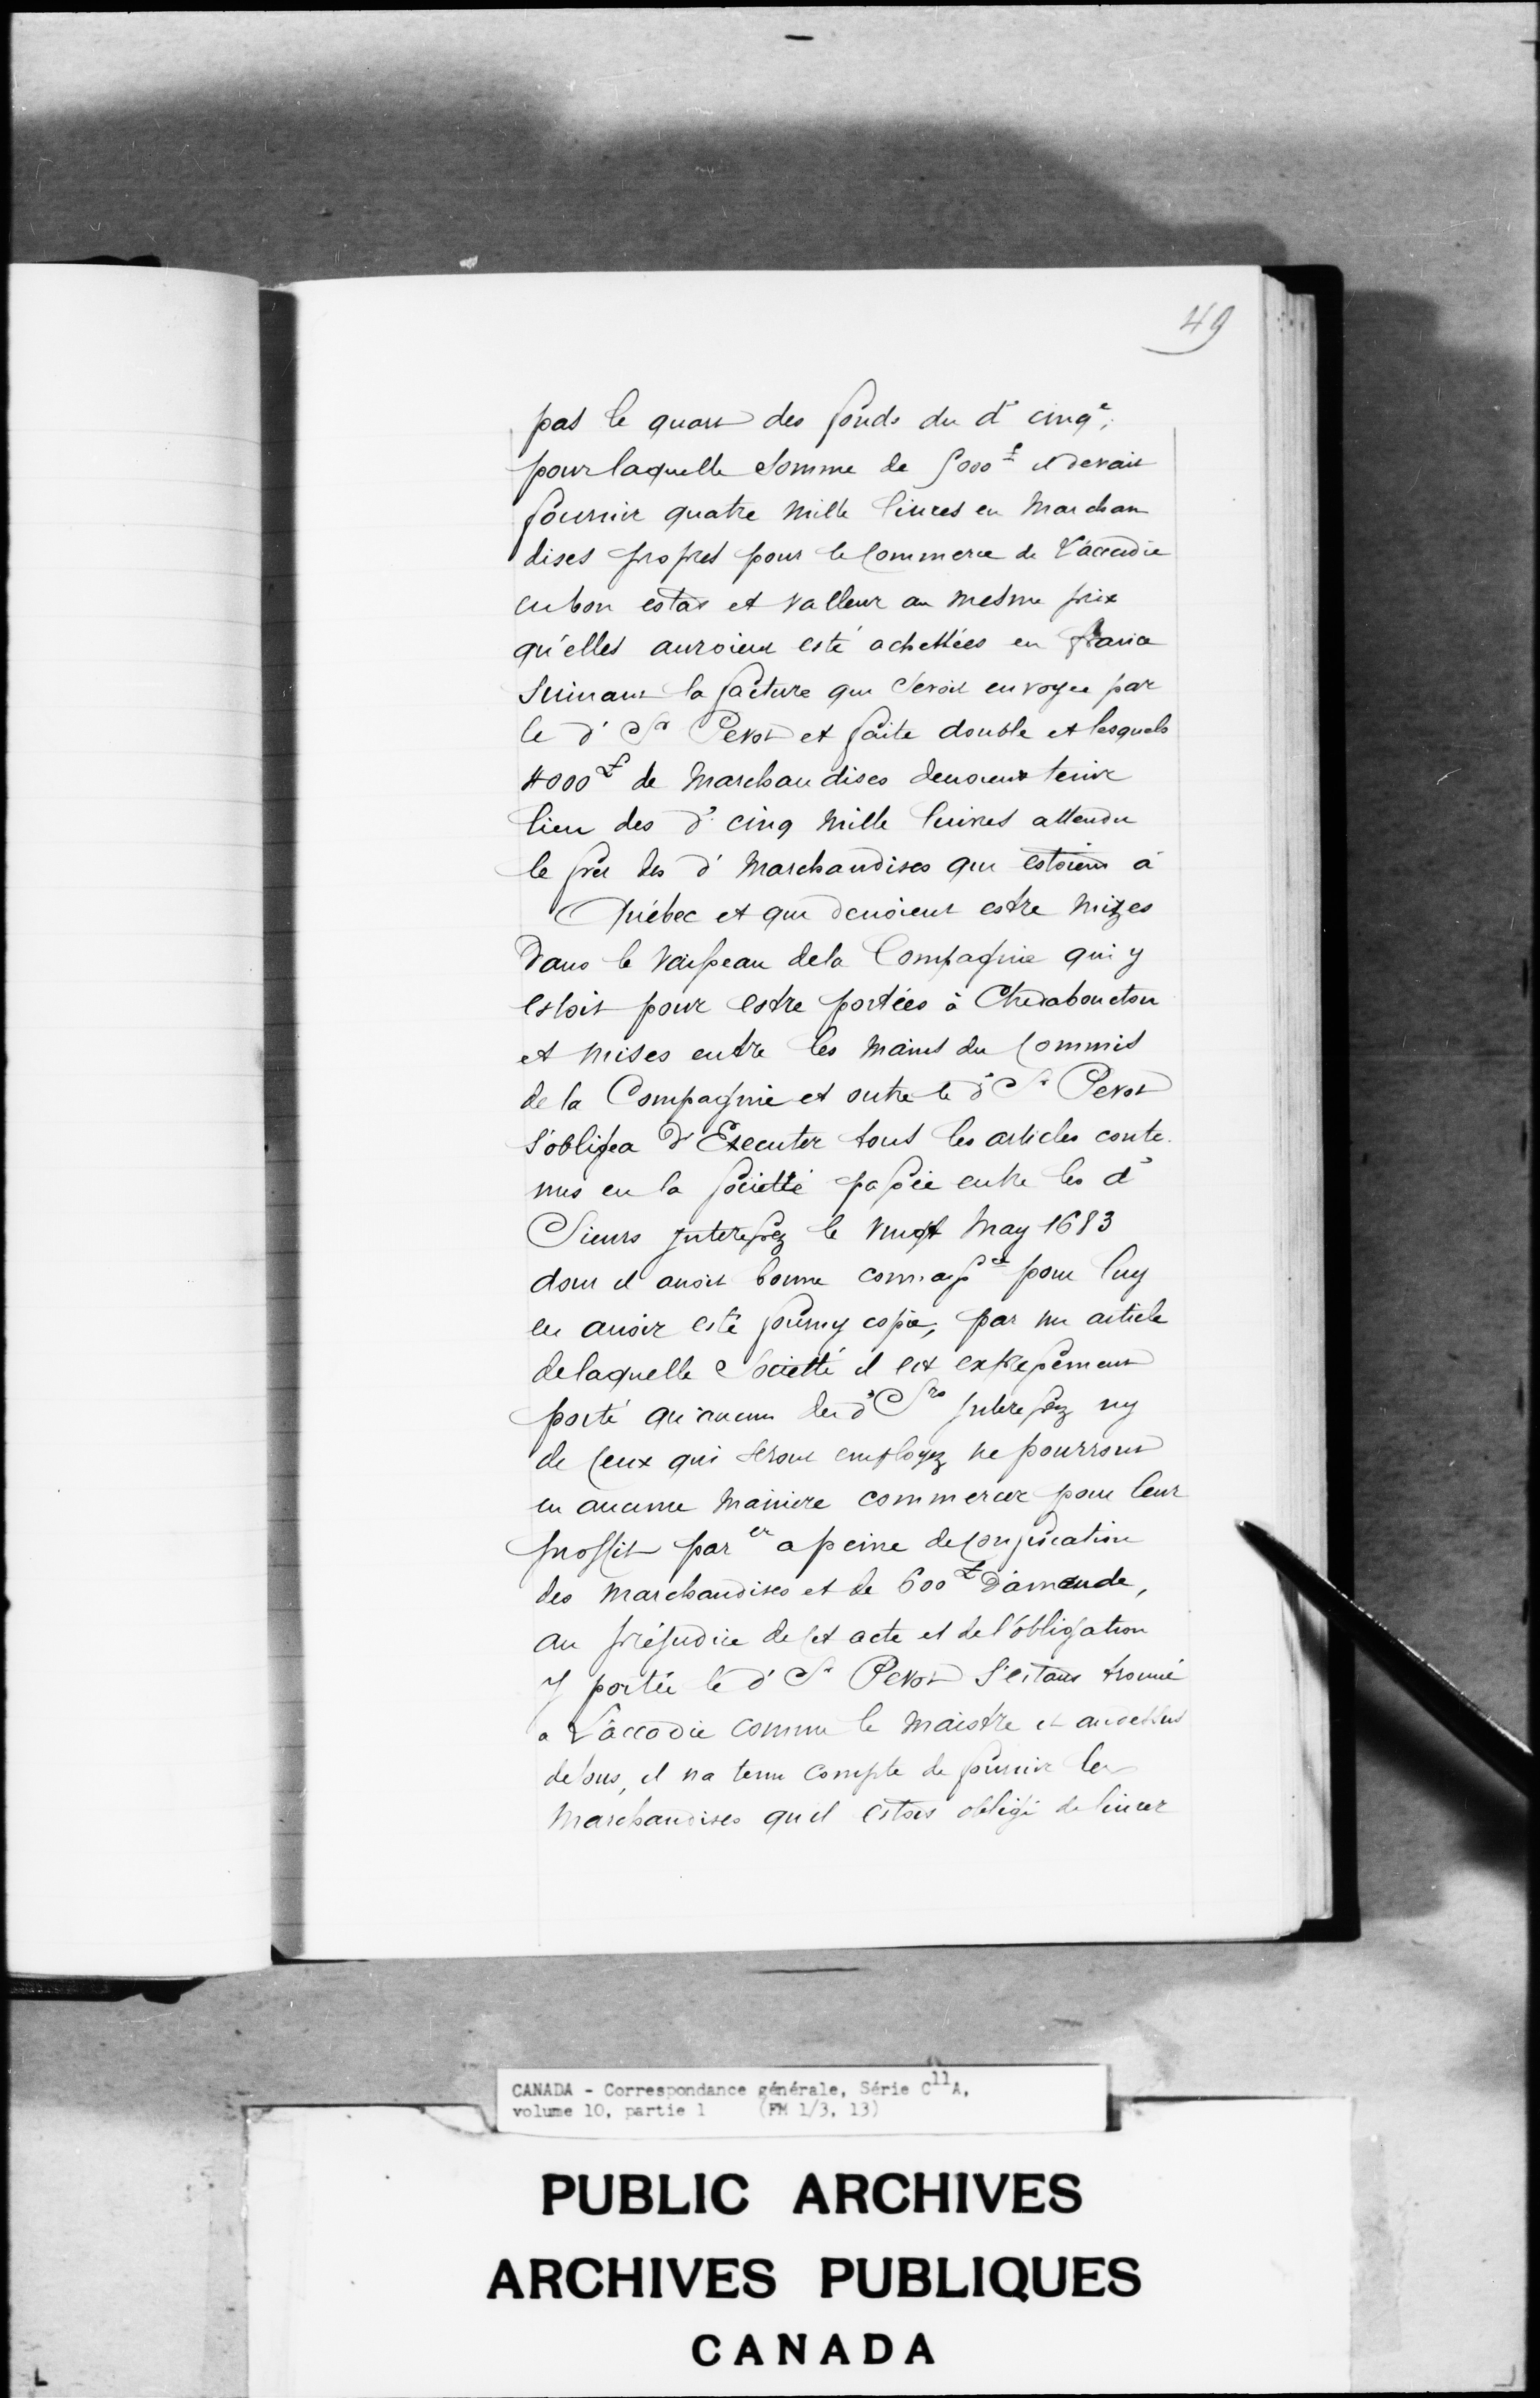 49
pas le quart des fonds du d' cinqe,
pour laquelle somme de 5000₶ il devait
fournir quatre mille livres en marchan
dises propres pour le Commerce de L'accadie
en bon estat et valleur au mesme prix
qu'elles auroient esté achettées en france
suivant la facture qui seroit envoyee par
le d' Sr Perot et faite double et lesquels
4000₶ de marchandises devoient tenir
lieu des d' cinq mille livres attendu
le fret des d' marchandises qui estoient à
Québec et qui devoient estre mizes
dans le vaisseau dela Compagnie qui y
estoit pour estre portées à Chedabouctou
et mises entre les mains du Commis
de la Compagnie et outre le d' Sr Perot
s'obligea d'Executer tous les articles conte
nus en la Societté passée entre les d'
Sieurs Interessez le vingt May 1683
dont il avoit bonne connaisce pour luy
en avoir esté fourny copie, par un article
delaquelle Societté il est expressement
porté qu'aucun des d' Srs Interessez ny
de Ceux qui seront employez ne pourront
en aucune maniere commercer pour leur
proffit parer a peine de confiscation
des marchandises et de 600₶ D'amende,
au préjudice de Cet acte et de l'obligation
y portée le d' Sr Perot s'estant trouvé
a L'accadie comme le maistre et audessus
detous, il na tenu compte de fournir les
marchandises qu'il estoit obligé de livrer
CANADA - Correspondance générale, Série C11A,
volume 10, partie 1 (FM 1/3, 13)
PUBLIC ARCHIVES
ARCHIVES PUBLIQUES
CANADA
L